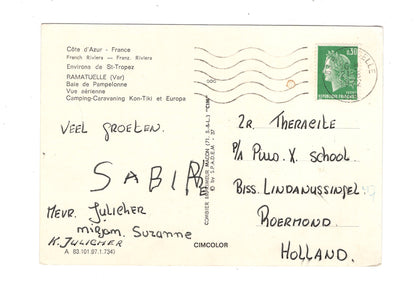 Côte d'Azur - France
French Riviera - Franz. Riviera
Environs de St-Tropez
RAMATUELLE (Var)
Baie de Pampelonne
Vue aérienne
Camping-Caravaning Kon-Tiki et Europa
VEEL GROETEN.
SABINE
MEVR. JULICHER
mirjam. SUZANNE
K. JULICHER
A 83.101.07.1.7343
CIMCOLOR
COMBIER IMPRIMEUR MACON (71, S.-&-L.) "CIM"
© by S.P.A.D.E.M.
0,30
REPUBLIQUE FRANCAISE
ZR. THERACITE
P/A PIUS. X. SCHOOL.
BISS. LINDANUSSINGEL
ROERMOND.
HOLLAND.